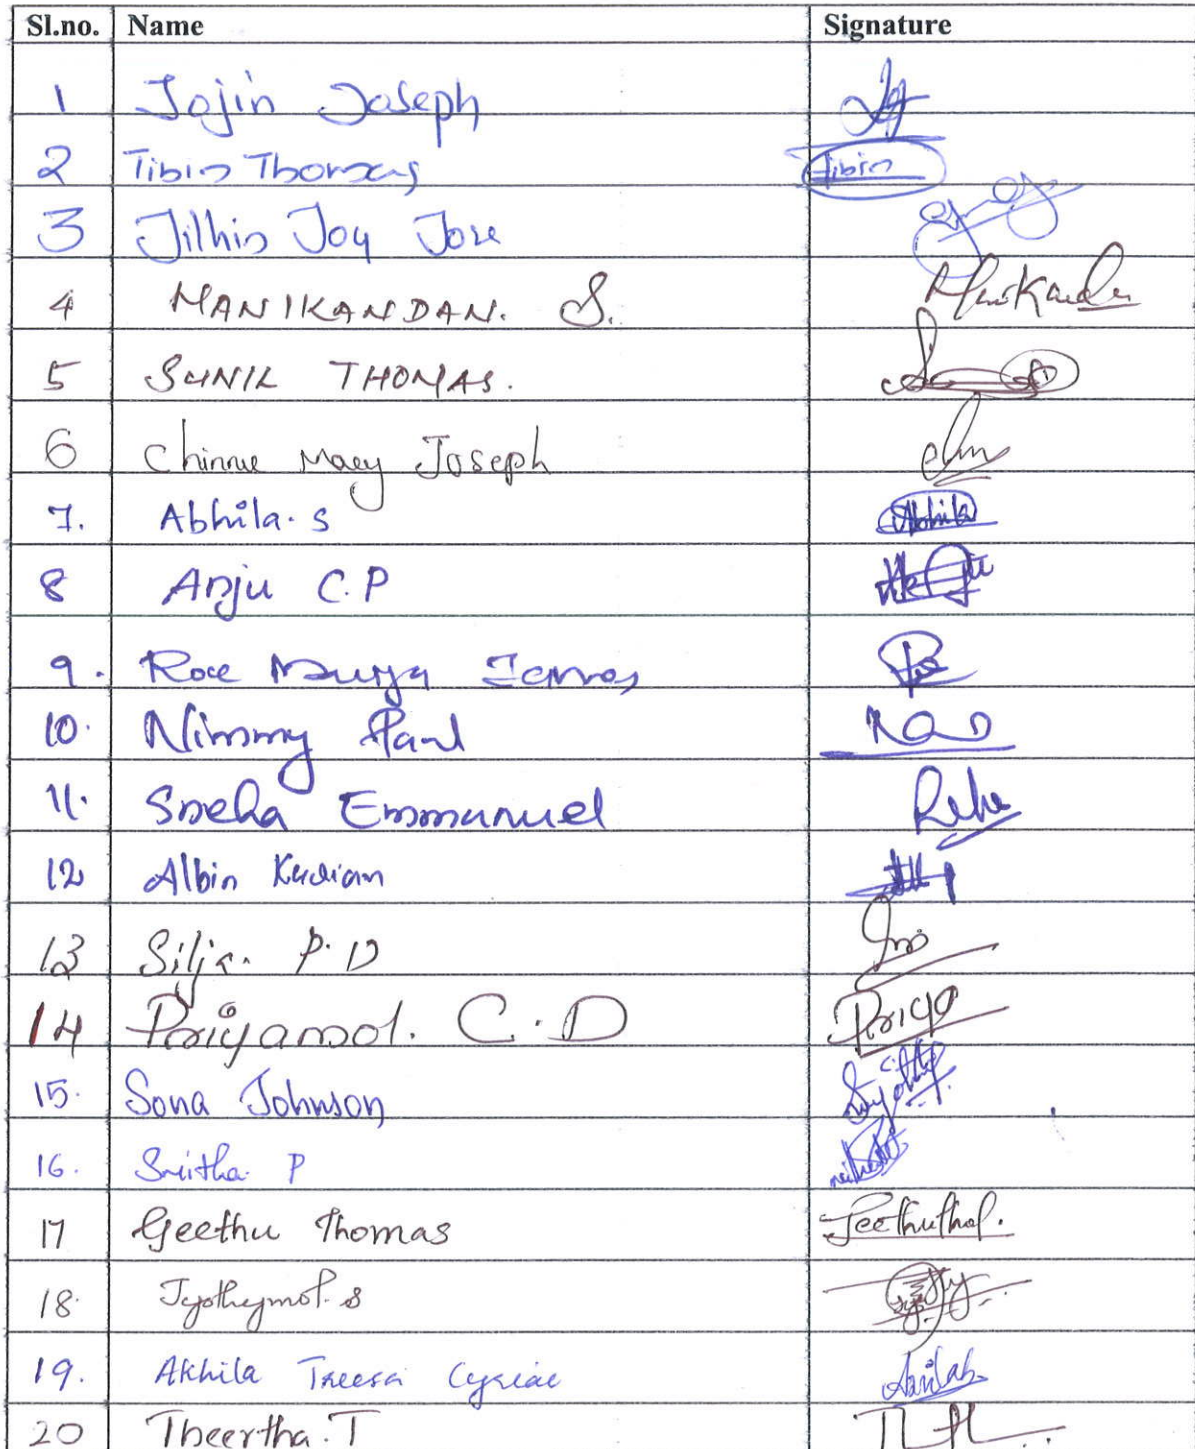 Sl.no. Name Signature
1 Jojin Joseph
2 Tibin Thomas Tibin
3 Jilhin Joy Jose
4 MANIKANDAN. S. Manikandan
5 SUNIL THOMAS.
6 Chinnu Mary Joseph
7. Abhila. S Abhila
8 Anju C.P
9. Rose Maurya James
10. Nimmy Paul
11. Sneha Emmanuel
12 Albin Kurian
13 Silja. P. D
14 Priyamol. C. D Priya
15. Sona Johnson
16. Smitha. P
17 Geethu Thomas
18. Jyothymol. S
19. Akhila Treesa Cyriac
20 Theertha. T